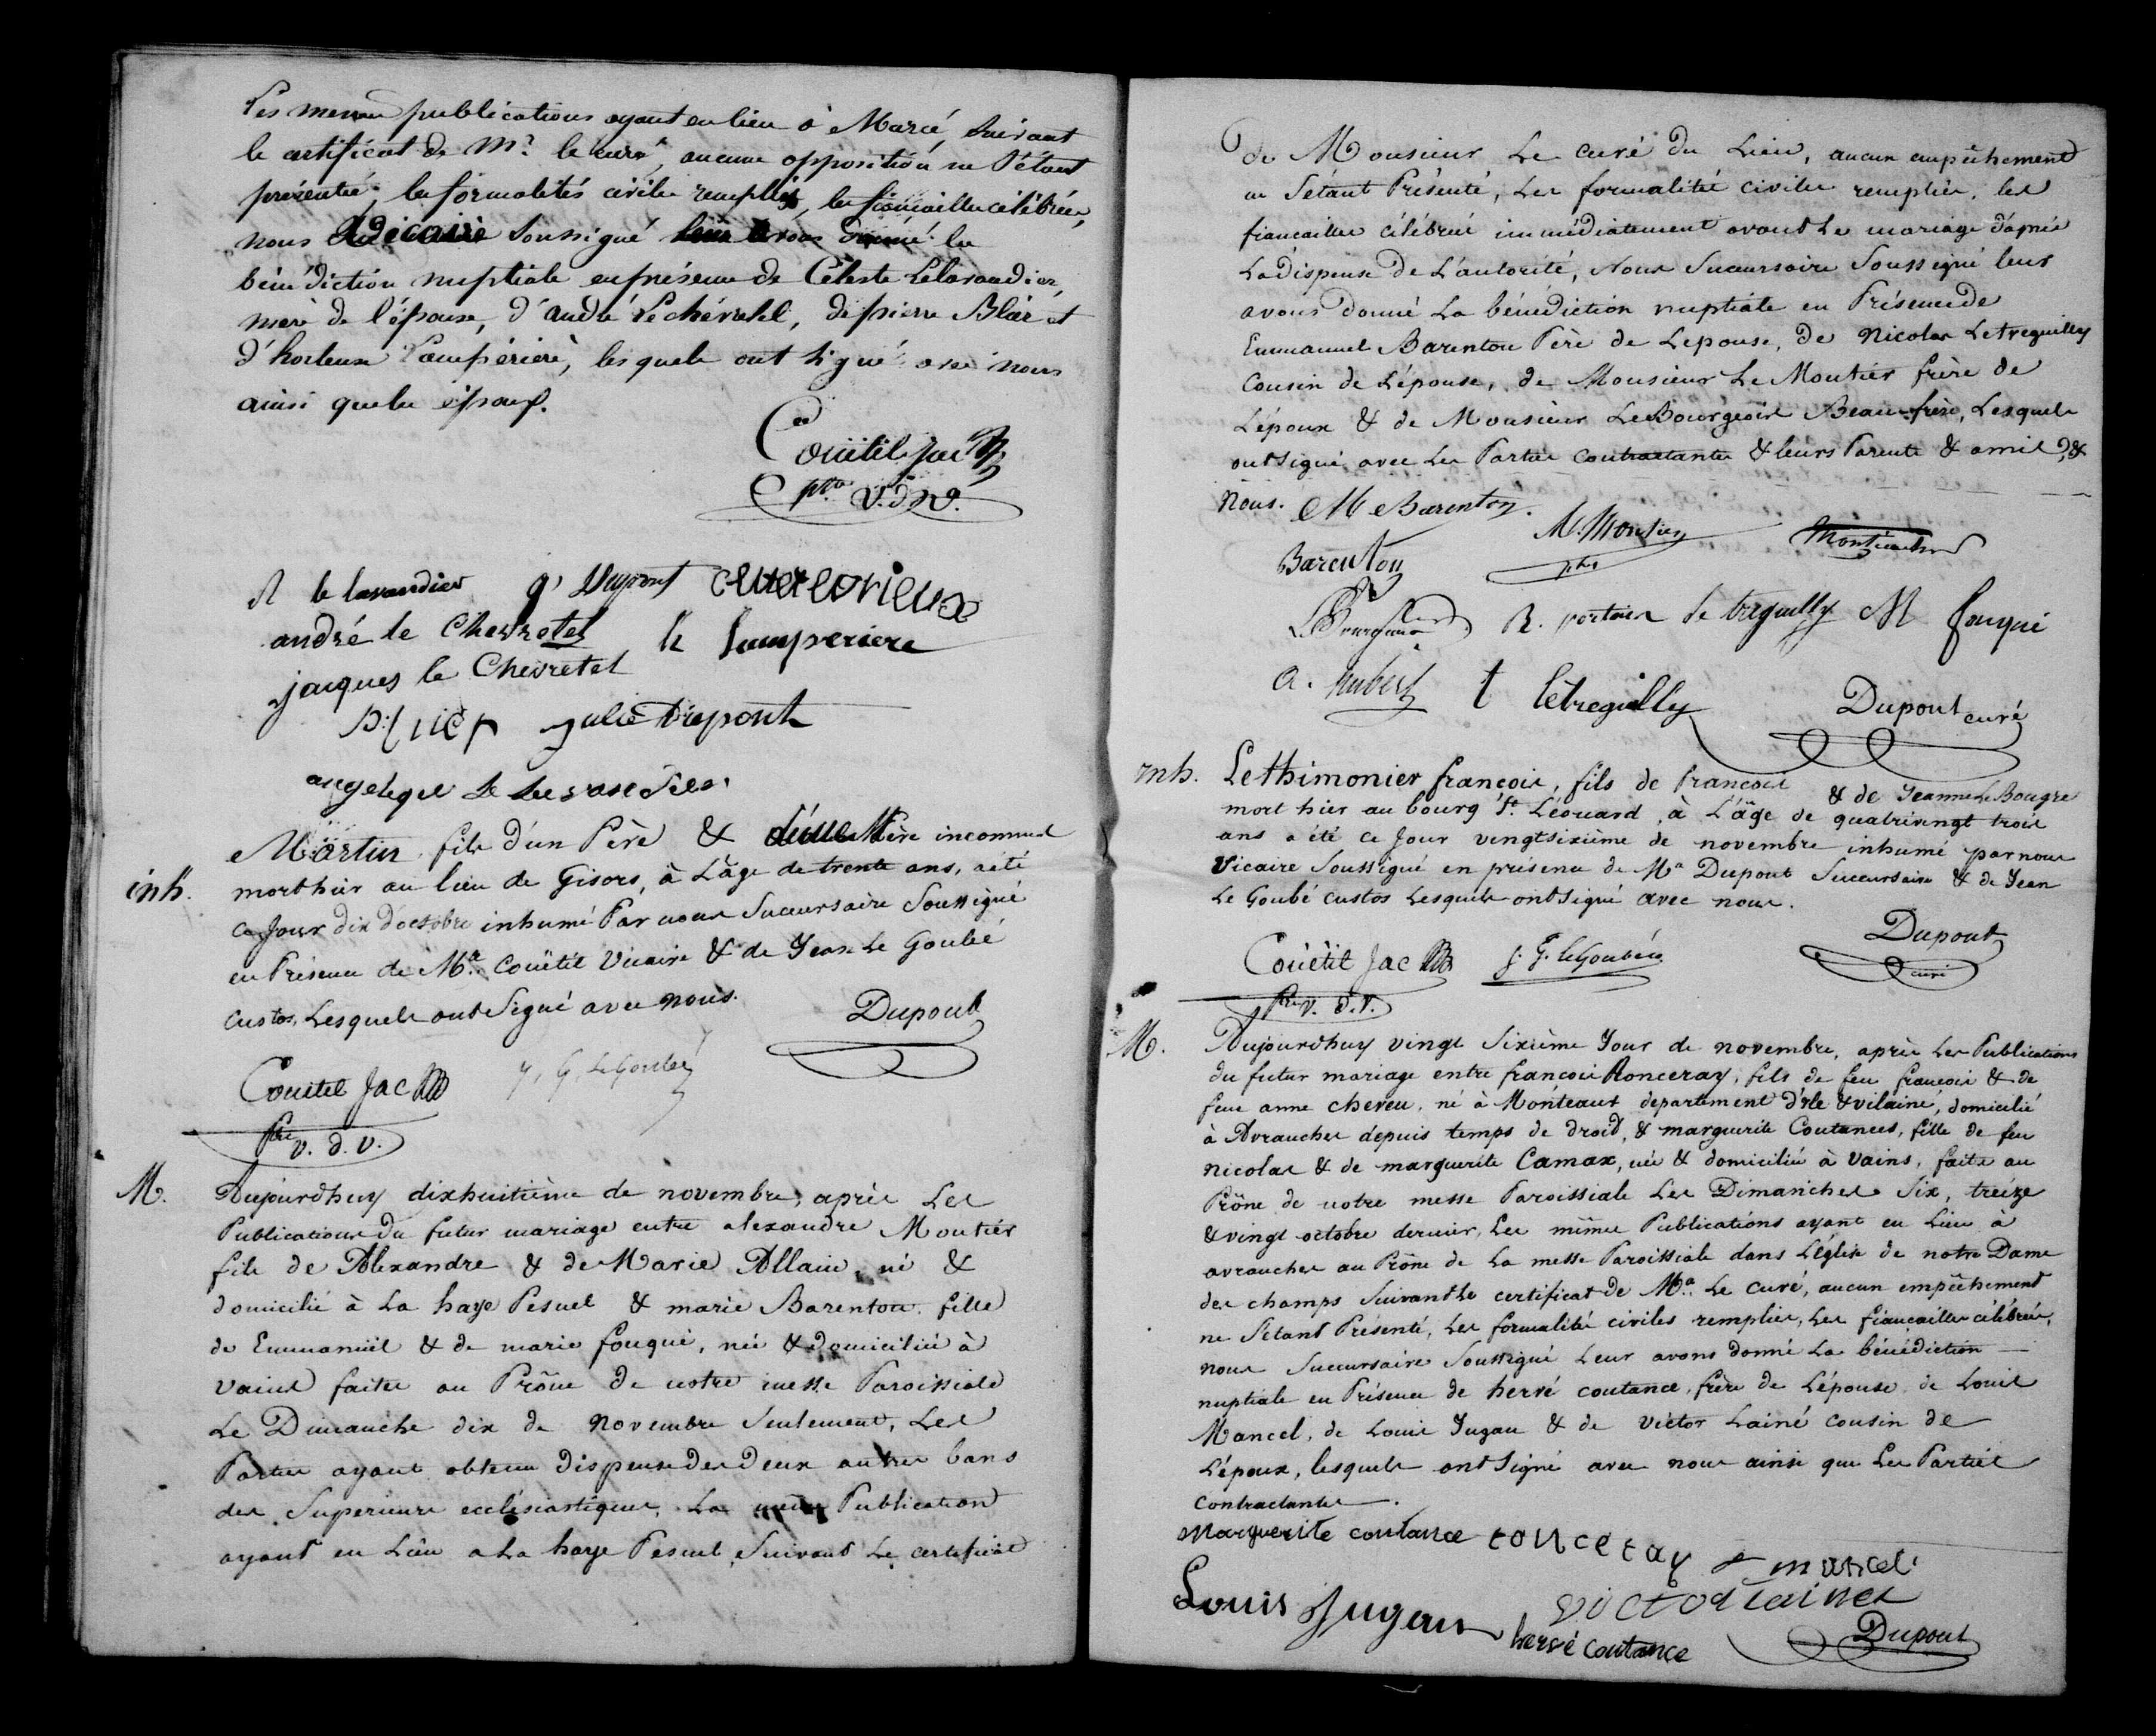 Les memes publications ayant eu lieu à Marcé, suivant
le certificat de Mr. le curé, aucune opposition ne s'étant
présentée, les formalités civiles remplies, les fiançailles célébrées,
nous vicaire soussigné leur avons donné la
bénédiction nuptiale en présence de Céleste Lelavandier,
mère de l'épouse, d'andré Lechévretel, de pierre Blier et
d'hortense Lampérière, lesquels ont signé avec nous
ainsi que les époux.
Couëtil Jac
ptre V. d. V.
le lavandier g Dupont
andré le Chevretel h Lamperiere
jacques le Chevretel
julie Dupont
angeleque Le
inh. Martin fils d'un Père & d'une Mère inconnus
mort hier au lieu de Gisors, à L'âge de trente ans, a été
ce Jour dix d'octobre inhumé Par nous Succursaire Soussigné
en Présence de Mr. Couëtil Vicaire & de Jean Le Goubé
custos, Lesquels ont Signé avec nous.
Dupont
Couetil Jac J. G. LeGoubey
Ptre V. d. V.
M. Aujourdhuy dixhuitième de novembre, après Les
Publications du futur mariage entre alexandre Moutier
fils de Alexandre & de Marie Allain, né &
domicilié à La haye Pesnel & marie Barenton fille
de Emmanuël & de marie fouqué, née & domiciliée à
Vains faites au Prône de notre messe Paroissiale
Le Dimanche dix de Novembre Seulement, Les
Parties ayant obtenu dispense des deux autres bans
des Supérieurs ecclésiastiques. La même Publication
ayant eu Lieu a La haye Pesnel, Suivant Le certificat
de Monsieur Le curé du Lieu, aucun empêchement
ne S'étant Présenté, Les formalités civiles remplies, les
fiancailles célébrées immédiatement avant Le mariage d'après
La dispense de L'autorité, Nous Succursaire Soussigné leur
avons donné La bénédiction nuptiale en Présence de
Emmanuel Barenton Père de Lepouse, de Nicolas Letreguilly
Cousin de L'épouse, de Monsieur Le Moutier frère de
L'époux & de Monsieur LeBourgeois Beau-frère, Lesquels
ont signé avec Les Parties contractantes & leurs Parents & amis, &
Nous. M Barenton. M. Moutier
Barenton
R. portais le treguilly M fouqué
a. hubert t letreguilly Dupont curé
inh. Lethimonier françois, fils de françois & de Jeanne LeBougre
mort hier au bourg St. Léonard, à L'âge de quatrevingt trois
ans a été ce Jour vingtsixième de novembre inhumé par nous
Vicaire Soussigné en présence de Mr. Dupont Succursaire & de Jean
Le Goubé custos Lesquels ont Signé avec nous.
Dupont
curé
Couëtil Jac J. G. LeGoubey
Ptre V. d. V.
M. Aujourdhuy vingt Sixième Jour de novembre, après Les Publications
du futur mariage entre françois Ronceray, fils de feu francois & de
feue anne cheveu, né à Montaut departement d'ile & vilaine, domicilié
à Avranches depuis temps de droit, & marguerite Coutances, fille de feu
nicolas & de marguerite Camax, née & domiciliée à Vains, faites au
Prône de notre messe Paroissiale Les Dimanches Six, treize
& vingt octobre dernier, Les mêmes Publications ayant eu Lieu à
avranches au Prône de La messe Paroissiale dans L'église de notre Dame
des champs Suivant Le certificat de Mr. Le Curé, aucun empêchement
ne S'étant Présenté, Les formalités civiles remplies, Les fiançailles célébrées,
nous Succursaire Soussigné Leur avons donné La bénédiction
nuptiale en Présence de hervé coutance, frère de L'épouse, de Louis
Mancel, de Louis Jugan & de Victor Lainé cousin de
L'époux, lesquels ont Signé avec nous ainsi que Les Parties
contractantes.
Marguerite coutance ronceray mancel
Louis Jugan Victor lainel
hervé coutance Dupont